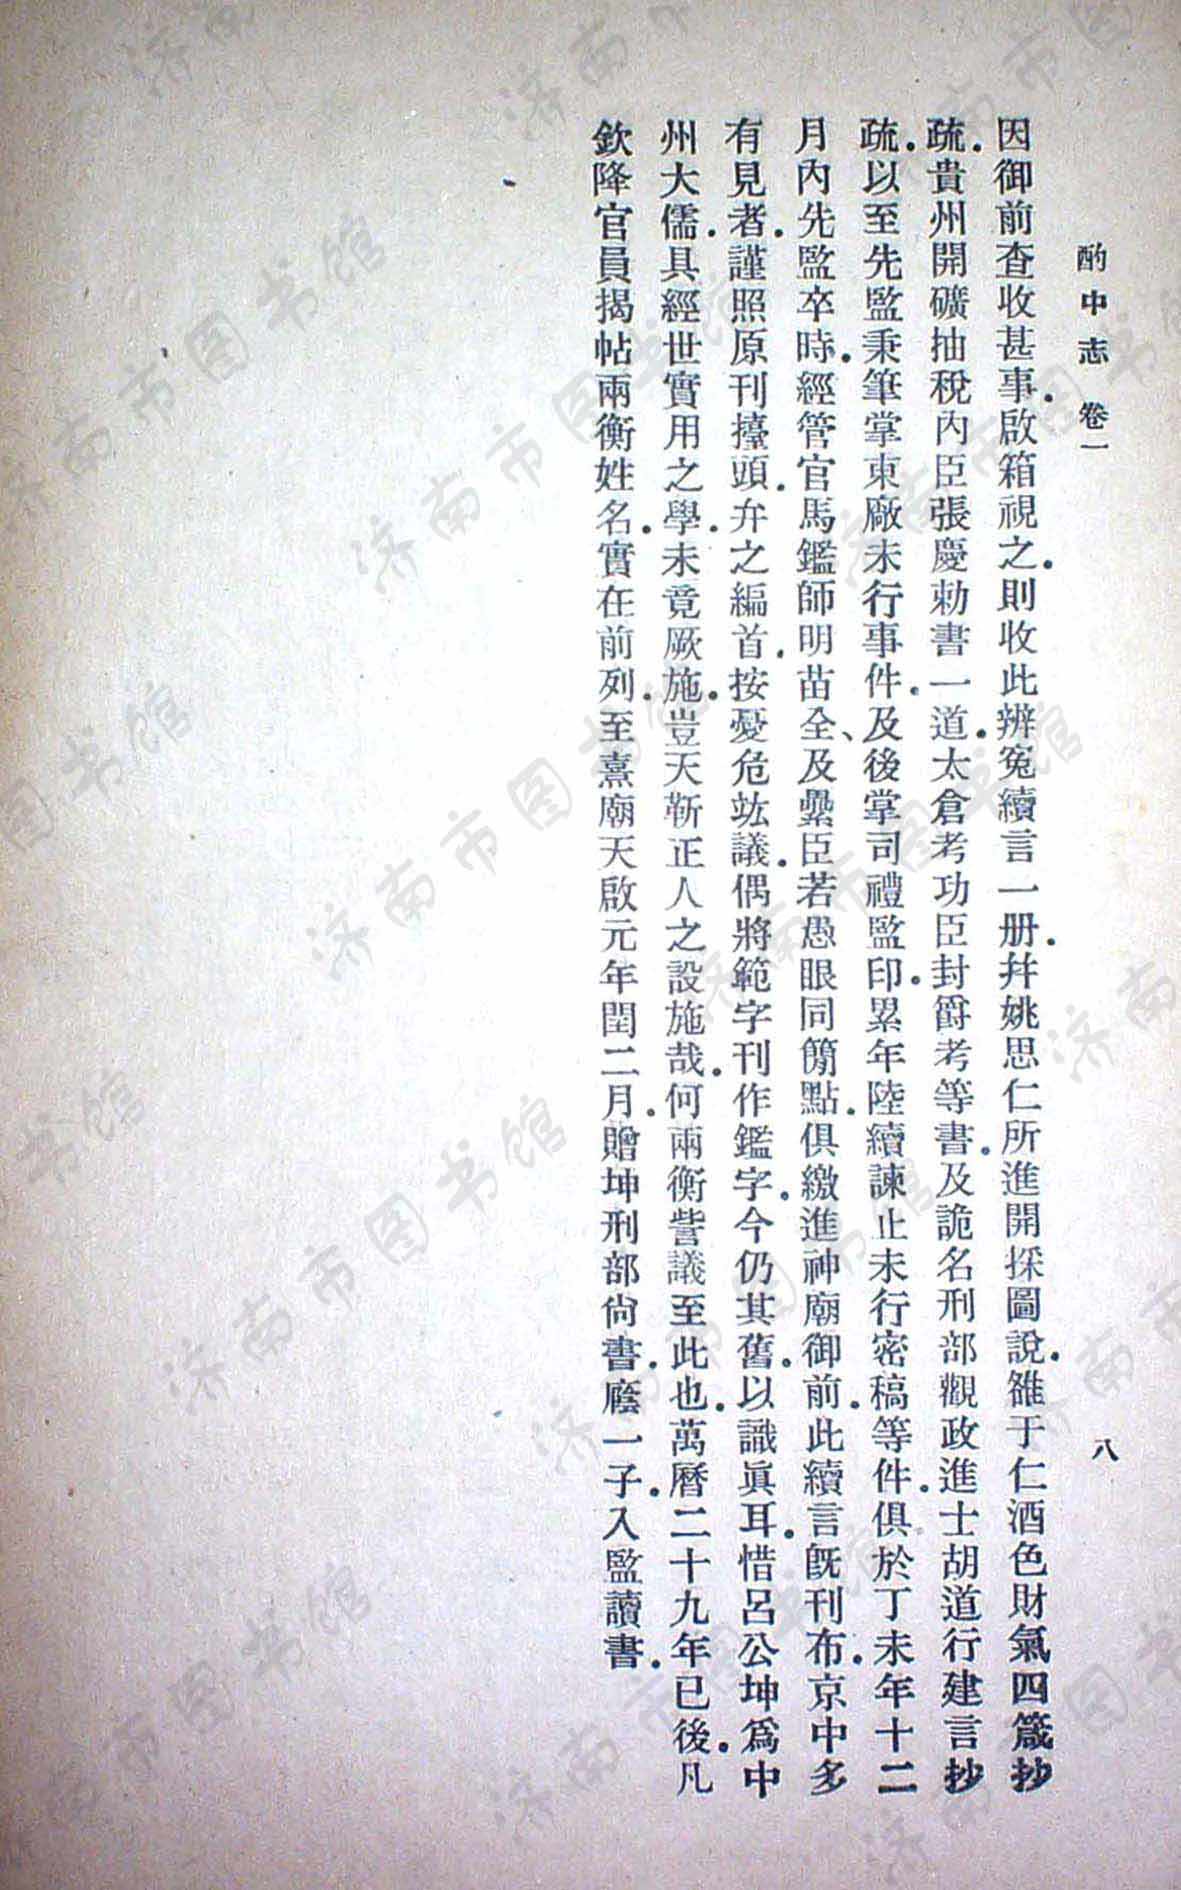 酌中志 卷一 八
因御前查收甚事.啟箱視之.則收此辨冤續言一册.幷姚思仁所進開採圖說.雒于仁酒色財氣四箴抄
疏.貴州開礦抽稅內臣張慶勅書一道.太倉考功臣封爵考等書.及詭名刑部觀政進士胡道行建言抄
疏.以至先監秉筆掌東廠未行事件.及後掌司禮監印.累年陸續諫止未行密稿等件.俱於丁未年十二
月內先監卒時.經管官馬鑑師明苗全、及纍臣若愚眼同簡點.俱繳進神廟御前.此續言既刊布.京中多
有見者.謹照原刊擡頭.弁之編首.按憂危竑議.偶將範字刊作鑑字.今仍其舊.以識眞耳.惜呂公坤爲中
州大儒.具經世實用之學.未竟厥施.豈天靳正人之設施哉.何兩衡訾議至此也.萬曆二十九年已後.凡
欽降官員揭帖兩衡姓名.實在前列.至熹廟天啟元年閏二月.贈坤刑部尙書.廕一子.入監讀書.
济南市图书馆